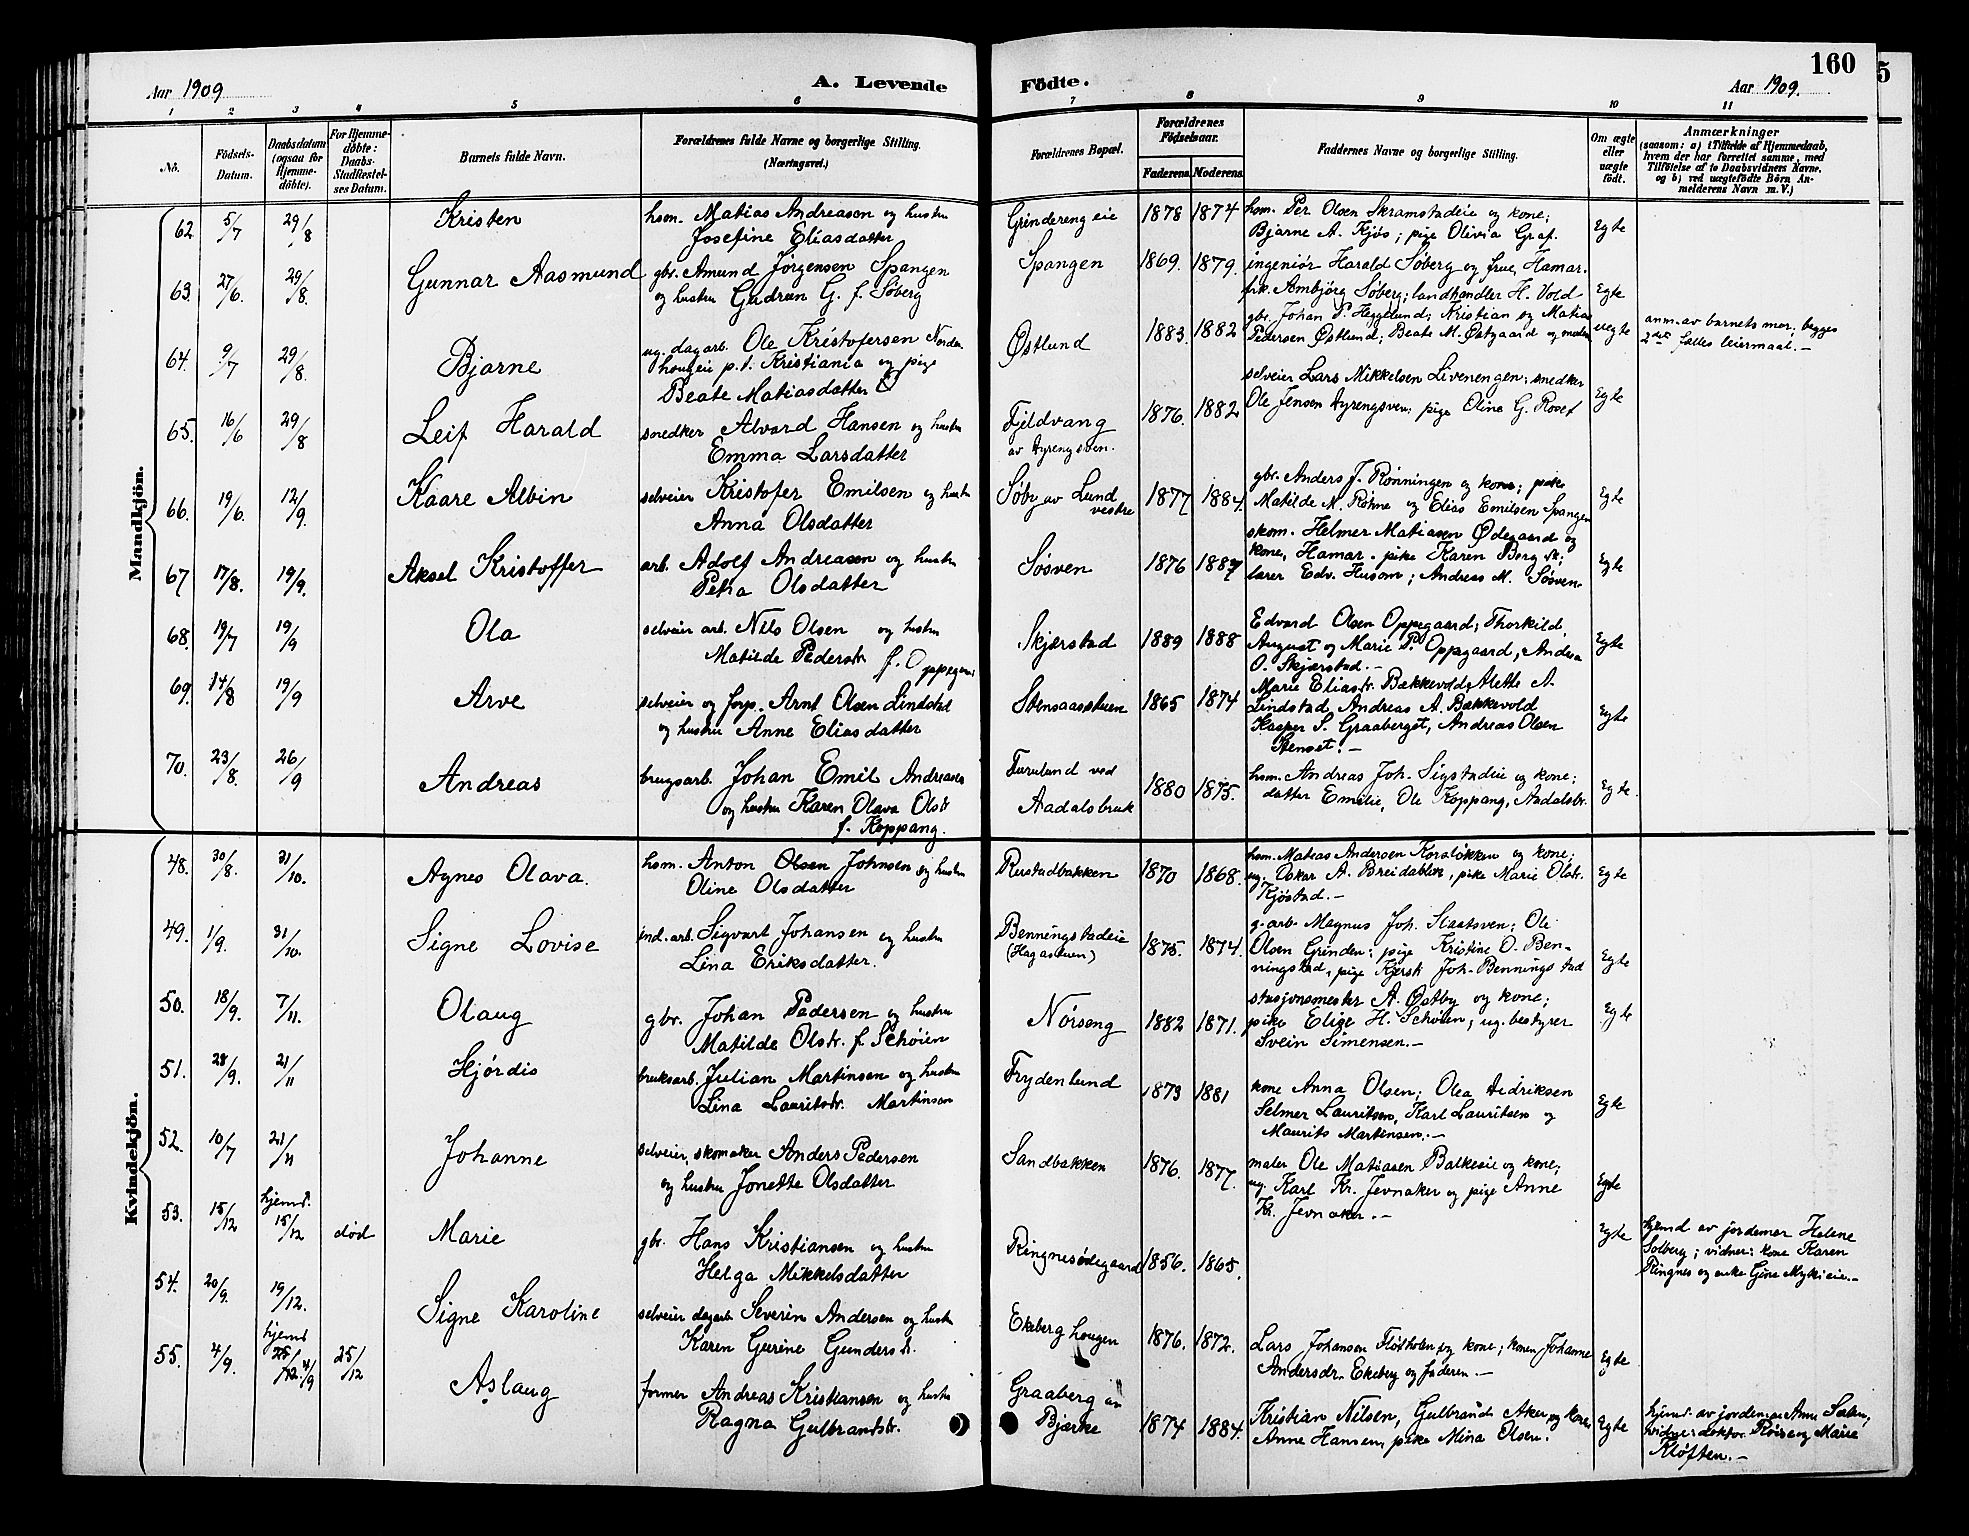 160
5
Aar 1909
A. Levende
Födte.
Aar 1909.
1 2 3 4 5 6 7 8 9 10 11
No.
Födsels-
Datum.
Daabsdatum
(ogsaa for
Hjemme-
döbte).
For Hjemme-
döbte:
Daabs-
Stadfæstel-
ses Datum.
Barnets fulde Navn.
Forældrenes fulde Navne og borgerlige Stilling.
(Næringsvei.)
Forældrenes Bopæl.
Forældrenes
Födselsaar.
Faderens
Moderens
Faddernes Navne og borgerlige Stilling.
Om ægte
eller
uægte
födt.
Anmærkninger
(saasom: a) i Tilfælde af Hjemmedaab,
hvem der har forrettet samme, med
Tilföielse af to Daabsvidners Navne,
og b) ved uægtefödte Börn An-
melderens Navn m. V.)
Mandkjön.
62 5/7 29/8 Kristen
hsm. Matias Andreasen og hustru
Josefine Eliasdatter
Grindereng eie 1878 1874
hsm. Per Olsen Skramstadeie og kone;
Bjarne A. Kjøs; pige Olivia Graf.
Egte
63. 27/6. 29/8. Gunnar Aasmund
gbr. Amund Jörgensen Spangen
og hustru Gudrun G. f. Søberg
Spangen 1869. 1879.
ingeniør Harald Søberg og frue, Hamar.
frk. Ambjørg Søberg; landhandler H. Vold
gbr. Johan P. Hegglund; Kristian og Matias
Egte
64. 9/7 29/8. Bjarne
ug. dagarb. Ole Kristofersen Norden
hougeie p.t. Kristiania og pige
Beate Matiasdatter
Østlund 1883. 1882
Pedersen Østlund; Beate M. Østgaard og moder
uegte
anm. av barnets mor. begges
2det fælles leiermaal. —
65. 16/6 29/8 Leif Harald
snedker Alvard Hansen og hustru
Emma Larsdatter
Fjeldvang
av Hyrengsven. 1876. 1882
selveier Lars Mikkelsen Livenengen; snedker
Ole Jensen Hyrengsven; pige Oline G. Roset
Egte
66. 19/6. 12/9. Kaare Albin
selveier Kristofer Emilsen og hustru
Anna Olsdatter
Søby av Lund
vestre 1877 1884.
gbr. Anders J. Rønningen og kone; pike
Matilde M. Røhne og Elias Emilsen Spangen
Egte
67 17/8. 19/9. Aksel Kristoffer
arb. Adolf Andreasen og hustru
Petra Olsdatter
Søsven 1876 1887
skom. Helmer Matiasen Ødegaard og
kone, Hamar. pike Karen Berg sk;
lærer Edv. Husom; Andreas M. Søsven
Egte
68. 19/7 19/9 Ola
selveier arb. Nils Olsen og hustru
Matilde Pederstr. f. Oppegaard
Skjærstad 1889 1888
Edvard Olsen Oppegaard; Thorkild,
August og Marie P. Oppegaard, Andrea
O. Skjærstad. —
Egte
69. 14/8 19/9 Arve
selveier og forp. Arnt Olsen Lindstad
og hustru Anne Eliasdatter
Stensaasstuen 1865 1874
Marie Eliastr. Bækkevold, Alette A.
Lindstad, Andreas A. Bækkevold
Kasper S. Graaberget, Andreas Olsen
Stenset. —
Egte
70. 23/8 26/9 Andreas
brugsarb. Johan Emil Andreasen
og hustru Karen Olava Olsdr
f. Koppang.
Furulund ved
Aadalsbruk 1880 1875.
hsm. Andreas Joh. Sigstadeie og kone;
datter Emilie, Ole Koppang, Aadalsbr.
Egte.
Kvindekjön.
48. 30/8. 31/10. Agnes Olava.
hsm. Anton Olsen Johnsen og hustru
Oline Olsdatter
Rustadbakken 1870 1868.
hsm. Mateas Andersen Korsløkken og kone;
ug. Oskar A. Breidablik, pike Marie Olstr.
Kjøstad. —
Egte
49. 1/9. 31/10. Signe Lovise
ind. arb. Sigvart Johansen og hustru
Lina Eriksdatter.
Benningstadeie
(Hagastuen) 1875. 1874.
g. arb. Magnus Joh. Slaatsven; Ole
Olsen Grinden; pige Kristine O. Ben-
ningstad, pige Kjersti Joh. Benningstad
Egte
50. 18/9. 7/11. Olaug
gbr. Johan Pedersen og hustru
Matilde Olstr. f. Schøien
Nørseng 1882 1871.
stasjonsmester A. Østby og kone;
pike Elise H. Schøien, ug. bestyrer
Svein Simensen. —
Egte
51. 28/9. 21/11 Hjördis
bruksarb. Julian Martinsen og hustru
Lina Lauritsdr. Martinsen
Frydenlund 1873 1881
kone Anna Olsen; Olea Hedriksen
Selmer Lauritsen, Karl Lauritsen og
Maurits Martinsen. —
Egte
52. 10/7 21/11 Johanne
selveier, skomaker Anders Pedersen
og hustru Jonette Olsdatter
Sandbakken 1876. 1877.
maler Ole Matiasen Balkeeie og kone;
ug. Karl Kr. Jevnaker og pige Anne
Kr. Jevnaker. —
Egte
53. 15/12 hjemd. 15/12 død Marie
gbr. Hans Kristiansen og hustru
Helga Mikkelsdatter
Ringnesødegaard 1856. 1865.
Egte
hjemd av jordemor Helene
Solberg; vidner: kone Karen
Ringnes og enke Gine Mykieie. —
54. 20/9. 19/12. Signe Karoline
selveier dagarb Severin Andersen og hustru
Karen Gurine Gundersd.
Ekeberghougen 1876. 1872.
Lars Johansen Fløtholen og kone; konen Johanne
Andersdr. Ekeberg og faderen. —
Egte
55. 4/9. hjemd 4/9 25/12 Aslaug
former Andreas Kristiansen og hustru
Ragna Gulbrandstr.
Graaberg av
Bjerke 1874 1884.
Kristian Nilsen, Gulbrand Aker og kone
Anne Hansen, pike Mina Olsen.
Egte
hjemd. av jordemor Anne
vidner doktor og Marie
Kløften. —